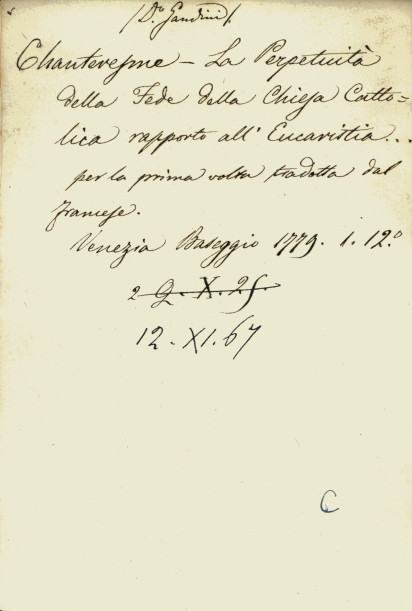 /D.º Gandini/.
Chanteresme – La Perpetuità
della Fede della Chiesa Catto=
lica rapporto all' Eucaristia...
per la prima volta tradotta dal
francese.
Venezia Baseggio 1779. 1. 12.º
2 Q. X. 25.
12. XI. 67
C